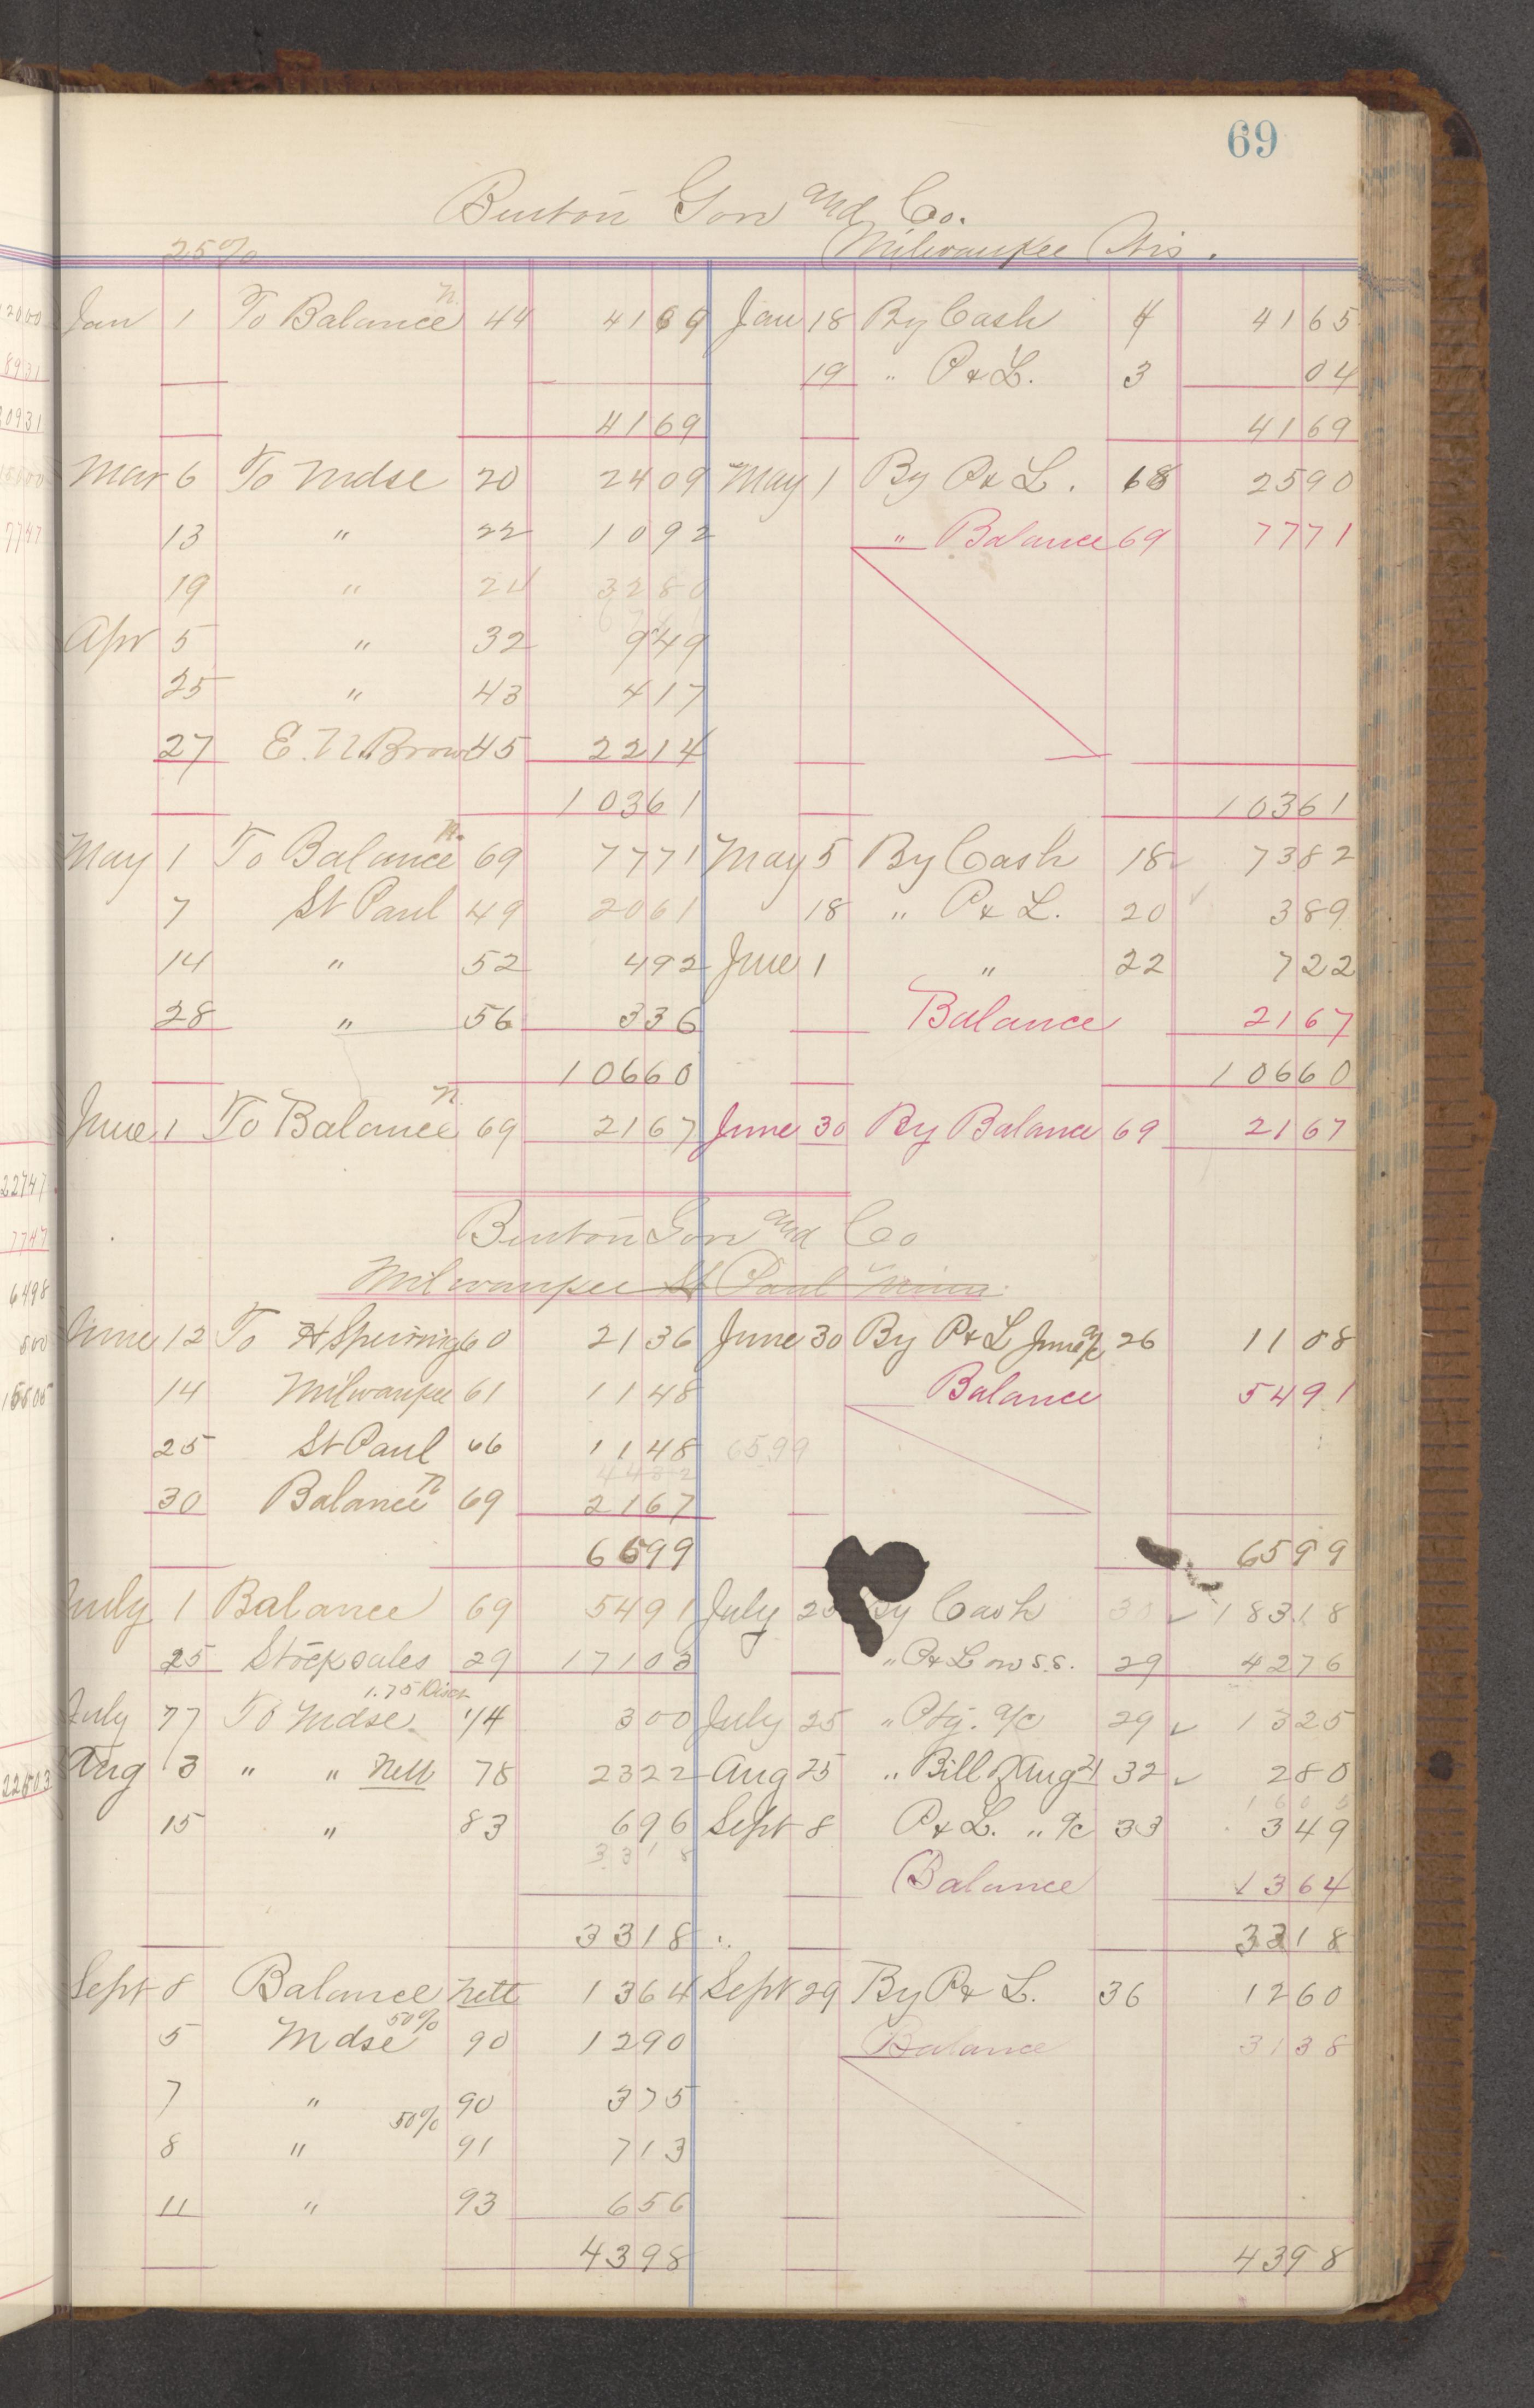 69
Burton Gon and Co.
25% Milwaukee Wis.
Jan 1 To Balance n. 44 4169 Jan 18 By Cash 4 4165
19 " P & L. 3 04
4169 4169
Mar 6 To Mdse 20 2409 May 1 By P & L. 68 2590
13 " 22 1092 " Balance 69 7771
19 " 24 3280
Apr 5 " 32 949
25 " 43 417
27 E. N. Brown 45 2214
10361 10361
May 1 To Balance n. 69 7771 May 5 By Cash 18 7382
7 St Paul 49 2061 18 " P & L. 20 389
14 " 52 492 June 1 " 22 722
28 " 56 336 Balance 2167
10660 10660
June 1 To Balance n 69 2167 June 30 By Balance 69 2167
Burton Gon and Co
Milwaukee St Paul Minn.
June 12 To 60 2136 June 30 By P & L June a/c 26 1108
14 Milwaukee 61 1148 Balance 5491
25 St Paul 66 1148 6599
4432
30 Balance n 69 2167
6599 6599
July 1 Balance 69 5491 July 25 By Cash 30 ✓ 18318
25 Stock sales 29 17103 " P & L on S.S. 29 4276
1.75 Disct
July 27 To Mdse 74 300 July 25 " a/c 29 ✓ 1325
Aug 3 " " Nett 78 2322 Aug 25 " Bill Aug 21 32 ✓ 280
15 " 83 696 Sept 8 P & L. " a/c 33 349
3318
Balance 1364
3318 3318
Sept 8 Balance Nett 1364 Sept 29 By P & L. 36 1260
5 Mdse 50% 90 1290 Balance 3138
7 " 90 375
8 " 50% 91 713
11 " 93 656
4398 4398
22747
7747
6498
800